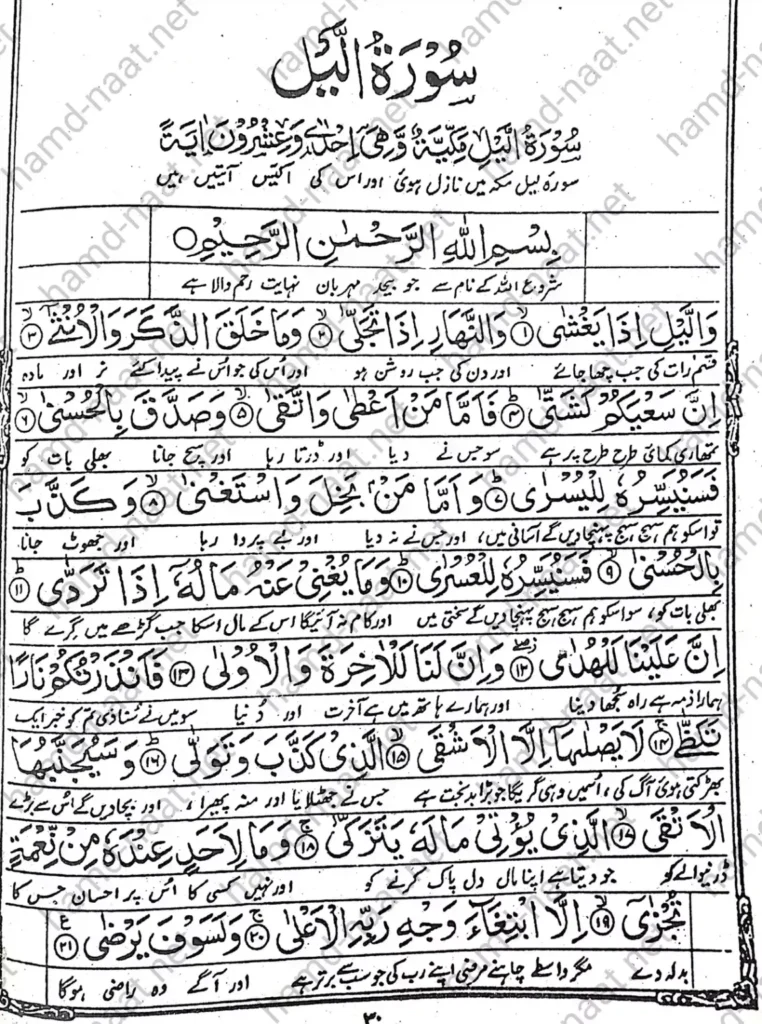 سُوْرَةُ الَّيْلِ
سُوْرَةُ الَّيْلِ مَكِّيَّةٌ وَّهِيَ اِحْدٰى وَعِشْرُوْنَ اٰيَةً
سورۂ لیل مکہ میں نازل ہوئی اور اس کی اکیس آیتیں ہیں
بِسْمِ اللّٰهِ الرَّحْمٰنِ الرَّحِيْمِ ○
شروع اللہ کے نام سے جو بیحد مہربان نہایت رحم والا ہے
وَالَّيْلِ اِذَا يَغْشٰى ۙ﴿۱﴾ وَالنَّهَارِ اِذَا تَجَلّٰى ۙ﴿۲﴾ وَمَا خَلَقَ الذَّكَرَ وَالْاُنْثٰۤى ۙ﴿۳﴾
قسم رات کی جب چھا جائے اور دن کی جب روشن ہو اور اُس کی جو اُس نے پیدا کئے نر اور مادہ
اِنَّ سَعْيَكُمْ لَشَتّٰى ؕ﴿۴﴾ فَاَمَّا مَنْ اَعْطٰى وَاتَّقٰى ۙ﴿۵﴾ وَصَدَّقَ بِالْحُسْنٰى ۙ﴿۶﴾
تمھاری کمائی طرح طرح پر ہے سو جس نے دیا اور ڈرتا رہا اور سچ جانا بھلی بات کو
فَسَنُيَسِّرُهٗ لِلْيُسْرٰى ؕ﴿۷﴾ وَاَمَّا مَنْۢ بَخِلَ وَاسْتَغْنٰى ۙ﴿۸﴾ وَكَذَّبَ
تو اسکو ہم سہج سہج پہنچا دیں گے آسانی میں، اور جس نے نہ دیا اور بے پروا رہا اور جھوٹ جانا
بِالْحُسْنٰى ۙ﴿۹﴾ فَسَنُيَسِّرُهٗ لِلْعُسْرٰى ؕ﴿۱۰﴾ وَمَا يُغْنِيْ عَنْهُ مَالُهٗۤ اِذَا تَرَدّٰى ؕ﴿۱۱﴾
بھلی بات کو، سو اسکو ہم سہج سہج پہنچا دیں گے سختی میں اور کام نہ آئیگا اس کے مال اسکا جب گڑھے میں گرے گا
اِنَّ عَلَيْنَا لَلْهُدٰى ۖ﴿۱۲﴾ وَاِنَّ لَنَا لَلْاٰخِرَةَ وَالْاُوْلٰى ﴿۱۳﴾ فَاَنْذَرْتُكُمْ نَارًا
ہمارا ذمہ ہے راہ سجھا دینا اور ہمارے ہاتھ میں ہے آخرت اور دُنیا سو میں نے سُنا دی تم کو خبر ایک
تَلَظّٰى ۚ﴿۱۴﴾ لَا يَصْلٰىهَاۤ اِلَّا الْاَشْقَى ۙ﴿۱۵﴾ الَّذِيْ كَذَّبَ وَتَوَلّٰى ؕ﴿۱۶﴾ وَسَيُجَنَّبُهَا
بھڑکتی ہوئی آگ کی، اُسمیں وہی گریگا جو بڑا بدبخت ہے جس نے جھٹلایا اور منہ پھیرا، اور بچا دیں گے اُس سے بڑے
الْاَتْقَى ۙ﴿۱۷﴾ الَّذِيْ يُؤْتِيْ مَالَهٗ يَتَزَكّٰى ۚ﴿۱۸﴾ وَمَا لِاَحَدٍ عِنْدَهٗ مِنْ نِّعْمَةٍ
ڈرنیوالے کو جو دیتا ہے اپنا مال دل پاک کرنے کو اور نہیں کسی کا اُس پر احسان جس کا
تُجْزٰۤى ۙ﴿۱۹﴾ اِلَّا ابْتِغَآءَ وَجْهِ رَبِّهِ الْاَعْلٰى ۚ﴿۲۰﴾ وَلَسَوْفَ يَرْضٰى ۠﴿۲۱﴾ ع
بدلہ دے مگر واسطے چاہنے مرضی اپنے رب کی جو سب سے برتر ہے اور آگے وہ راضی ہوگا
۳۰
hamd-naat.net